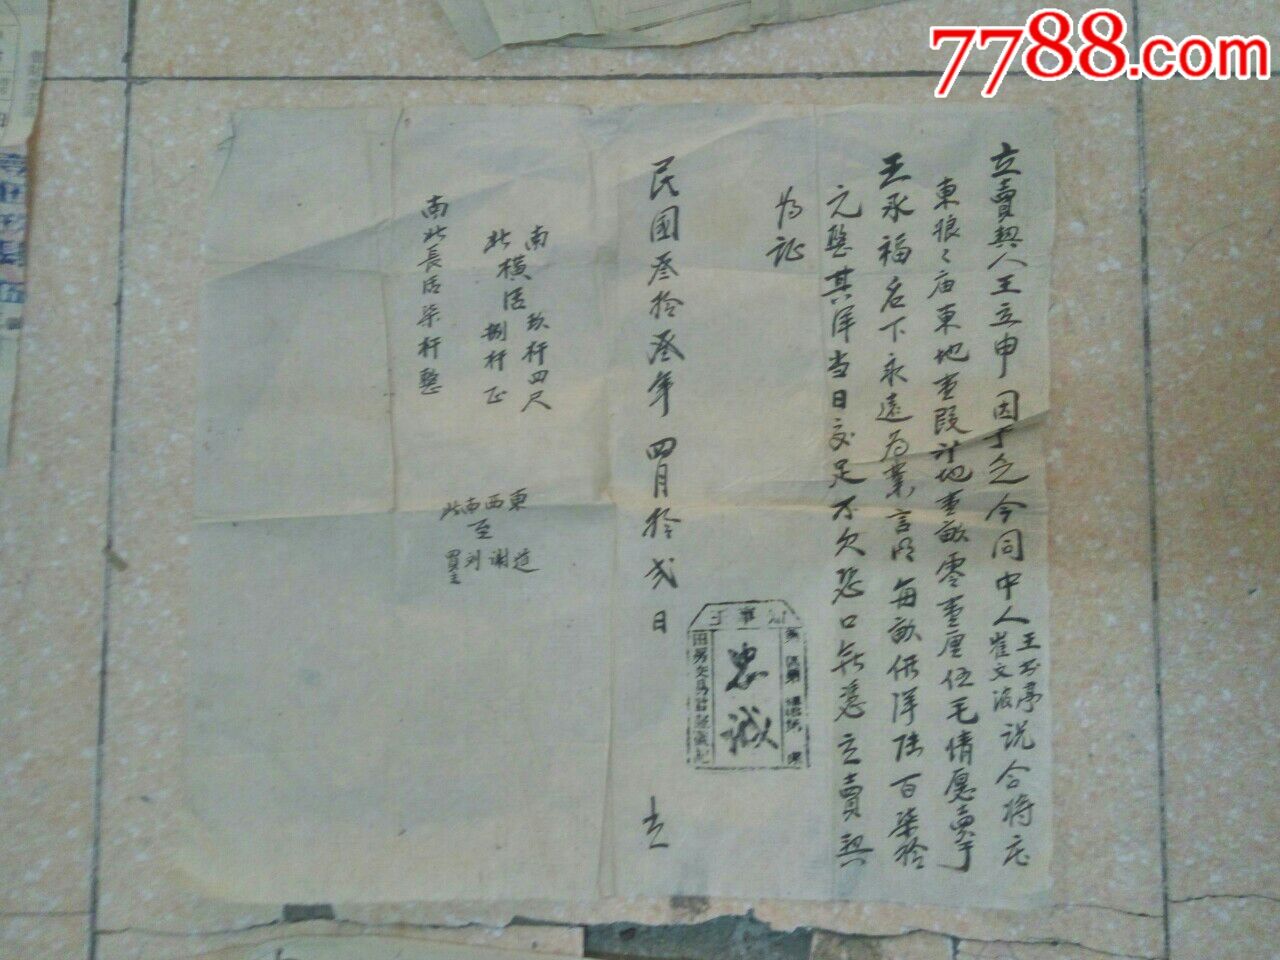 7788.com
立賣契人王立申因手乏今同中人王玉亭崔文波说合将庄
東狼〻庙東地壹段計地壹畝零壹厘伍毛情愿賣于
王永福名下永遠为業言明每畝價洋陆百柒拾
元整其洋当日交足不欠恐口無憑立賣契
为证
民國叁拾叁年四月拾弍日 立
忠诚
南 玖杆四尺
横活
北 捌杆正
南北長活柒杆整
東 道
西 谢
南 刘
北 買主
至